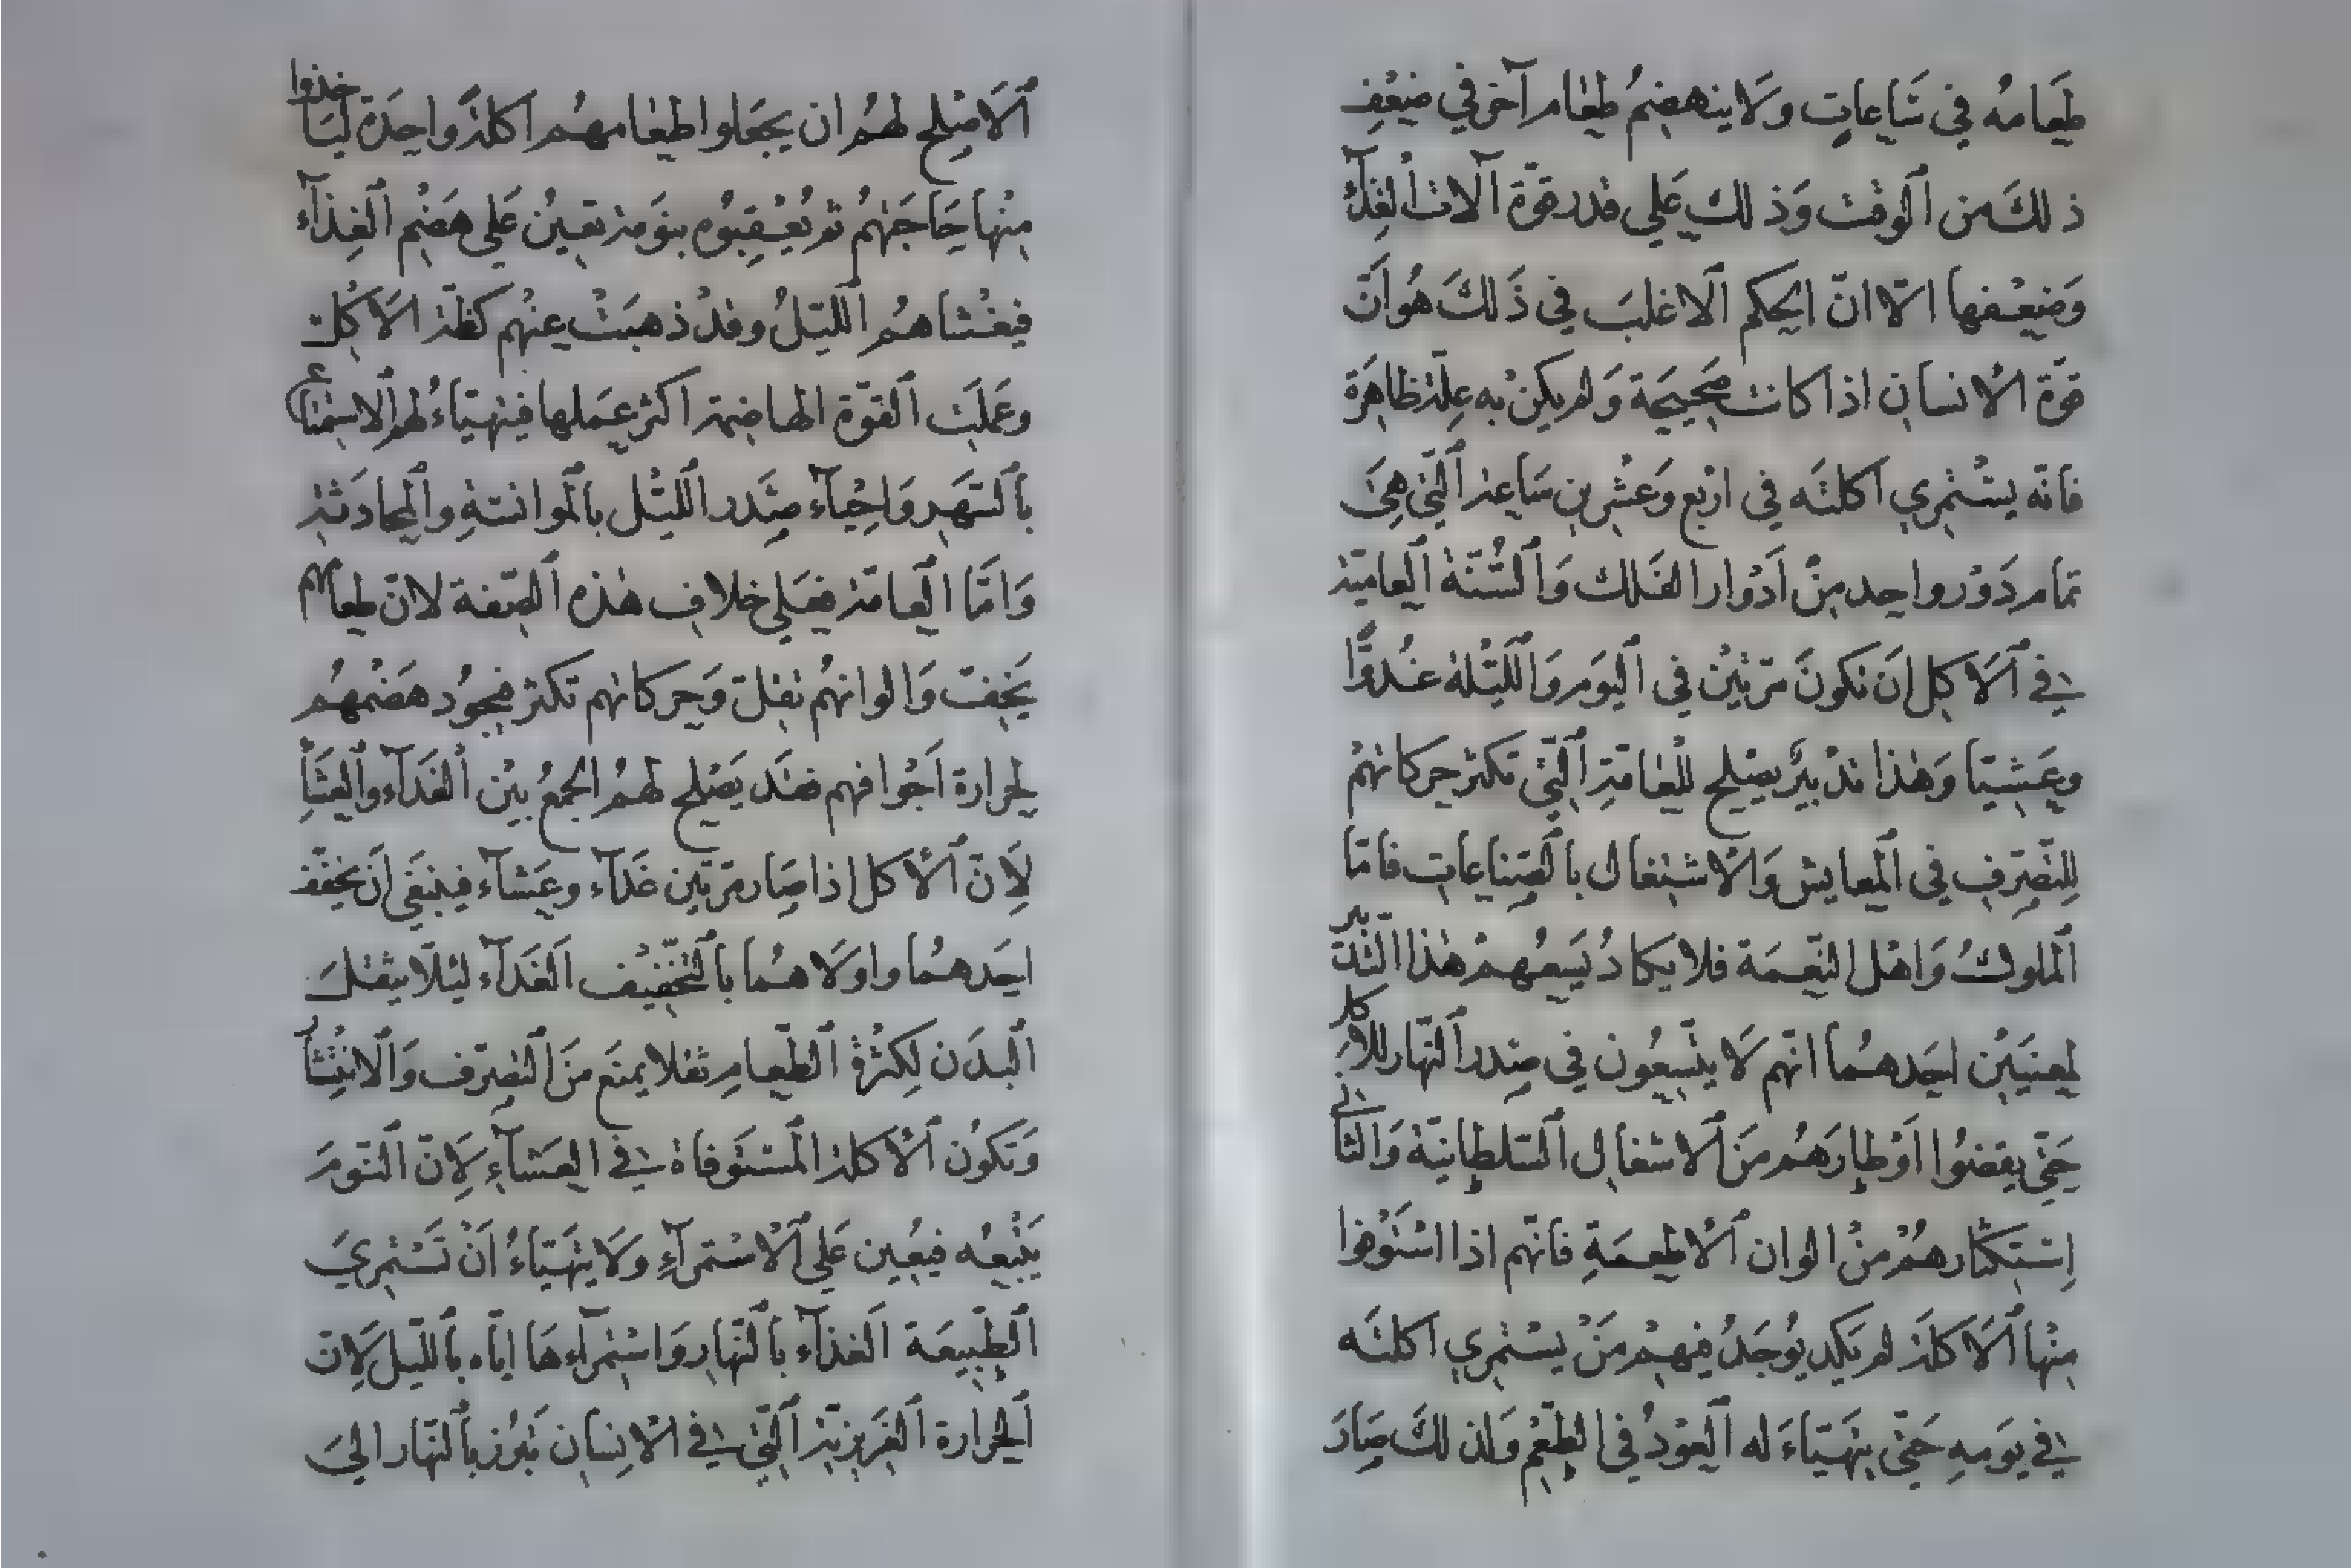 طَعَامهُ في سَاعاتٍ وَلاَ ينهضمُ طعَام آخر في ضِعْفِ
ذلكَ من اَلوقت وَذلك عَلى قدر قوّة آلات اْلغذآء
وَضعْفها الّا انّ الحكم اَلاغلبَ في ذَلكَ هُو اَنّ
قوّة الاْنسان اذا كانت صَحيحَة وَلم يكنْ به علّة ظاهِرَة
فانّه يسْتمري اكلتَه في ارْبع وَعشْرين سَاعة اَلّتي هِىَ
تمام دَوْر واحد منْ اَدْوار الفَلك وَاْلسُّنّة اَلعاميّة
في اَلاَكل اَن تكونَ مرّتيْن في اَليَومِ وَاللَّيْلة غُدوًّا
وعَشيّا وَهٰذا تدْبيرٌ يصْلح للْعَامّةِ اَلّتي تكثر حركاتهُمْ
لِلتّصرّف في اَلمعايش وَالاْشتغال باَلصّناعات فامّا
اَلملوكُ وَاهْل النّعمَة فلا يكادُ يَسعُهمْ هٰذا التّدبير
لمعنيَيْن احَدهمُا انّهم لاَ يتّسعُون في صَدر اَلنّهار للاَكل
حَتّي يقضوُا اَوْطارَهُم منَ اَلاشغال اَلسّلطانيّة وَالثاني
اِسْتكثارهُمْ منْ الوان اَلاْطعمَةِ فانّهم اذا اسْتَوْفوا
منْها اَلاَكلة لم يَكد يُوجَدُ فيهمْ مَنْ يسْتمري اكلتَه
في يوَمهِ حَتّى يتهَيّاءَ له اَلعوْدُ في الطّعْم وَلذلكَ صَارَ
اَلاَصْلح لهُم ان يجعَلوا طعَامهُم اكلةً واحِدَة ليَاخذوا
منْها حَاجَتهُمْ ثم يُعْقبوُه بنوَمة تعيْن عَلى هضْم اَلغذَآء
فيغْشاهمُ اللّيْلُ وقدْ ذهبَتْ عنْهم كظّة الاَكل
وعَملَت اَلقوّة الهاضمة اكثر عمَلها فيتهيّاءُ لهم اَلاستمتاع
باَلسّهَر وَاِحْيَآء صَدر اللّيْل بالْموانسَةِ واَلمحادَثة
وَامّا اَلعامّة فعَلى خلاف هٰذه اَلصّفة لانّ طعامهم
يَخفّ وَالوانهُم تقلّ وَحركاتهم تكثر فيجوُد هضْمهُم
لحرارة اَجْوافهم فقَد يَصْلح لهمُ الجمعُ بيْن اْلغَدَآء واَلعشَآءِ
لِاَنّ اَلاْكل اذا صَار مَرّتيَن غَدَآء وعَشآء فينبَغي اَنْ يخفّفَ
احَدهمُا واوَلاَهمُا باَلتّخْفيْف اَلغَدَآء ليَلّا يثقلَ
اَلبدَن لكثْرةِ اَلطّعامِ ثقلا يمنَع منَ التّصرّف وَاَلانتْشار
وَتكوُن اَلاْكلة اَلمسْتَوفاة في العَشآءِ لِاَنّ النّومَ
يَتْبعُه فيعُين عَلى اَلاْسْتمرآءِ ولاَ يتهَيّاءُ اَنْ تَسْتمريَ
اَلطّبيعَة اَلغذآء باَلنّهار وَاسْتمرآءهَا ايّاه باَللّيل لِاَنّ
اَلحرارة اَلغَريزيّة اَلّتي في الاْنسان تَبرُز باَلنّهار الىَ